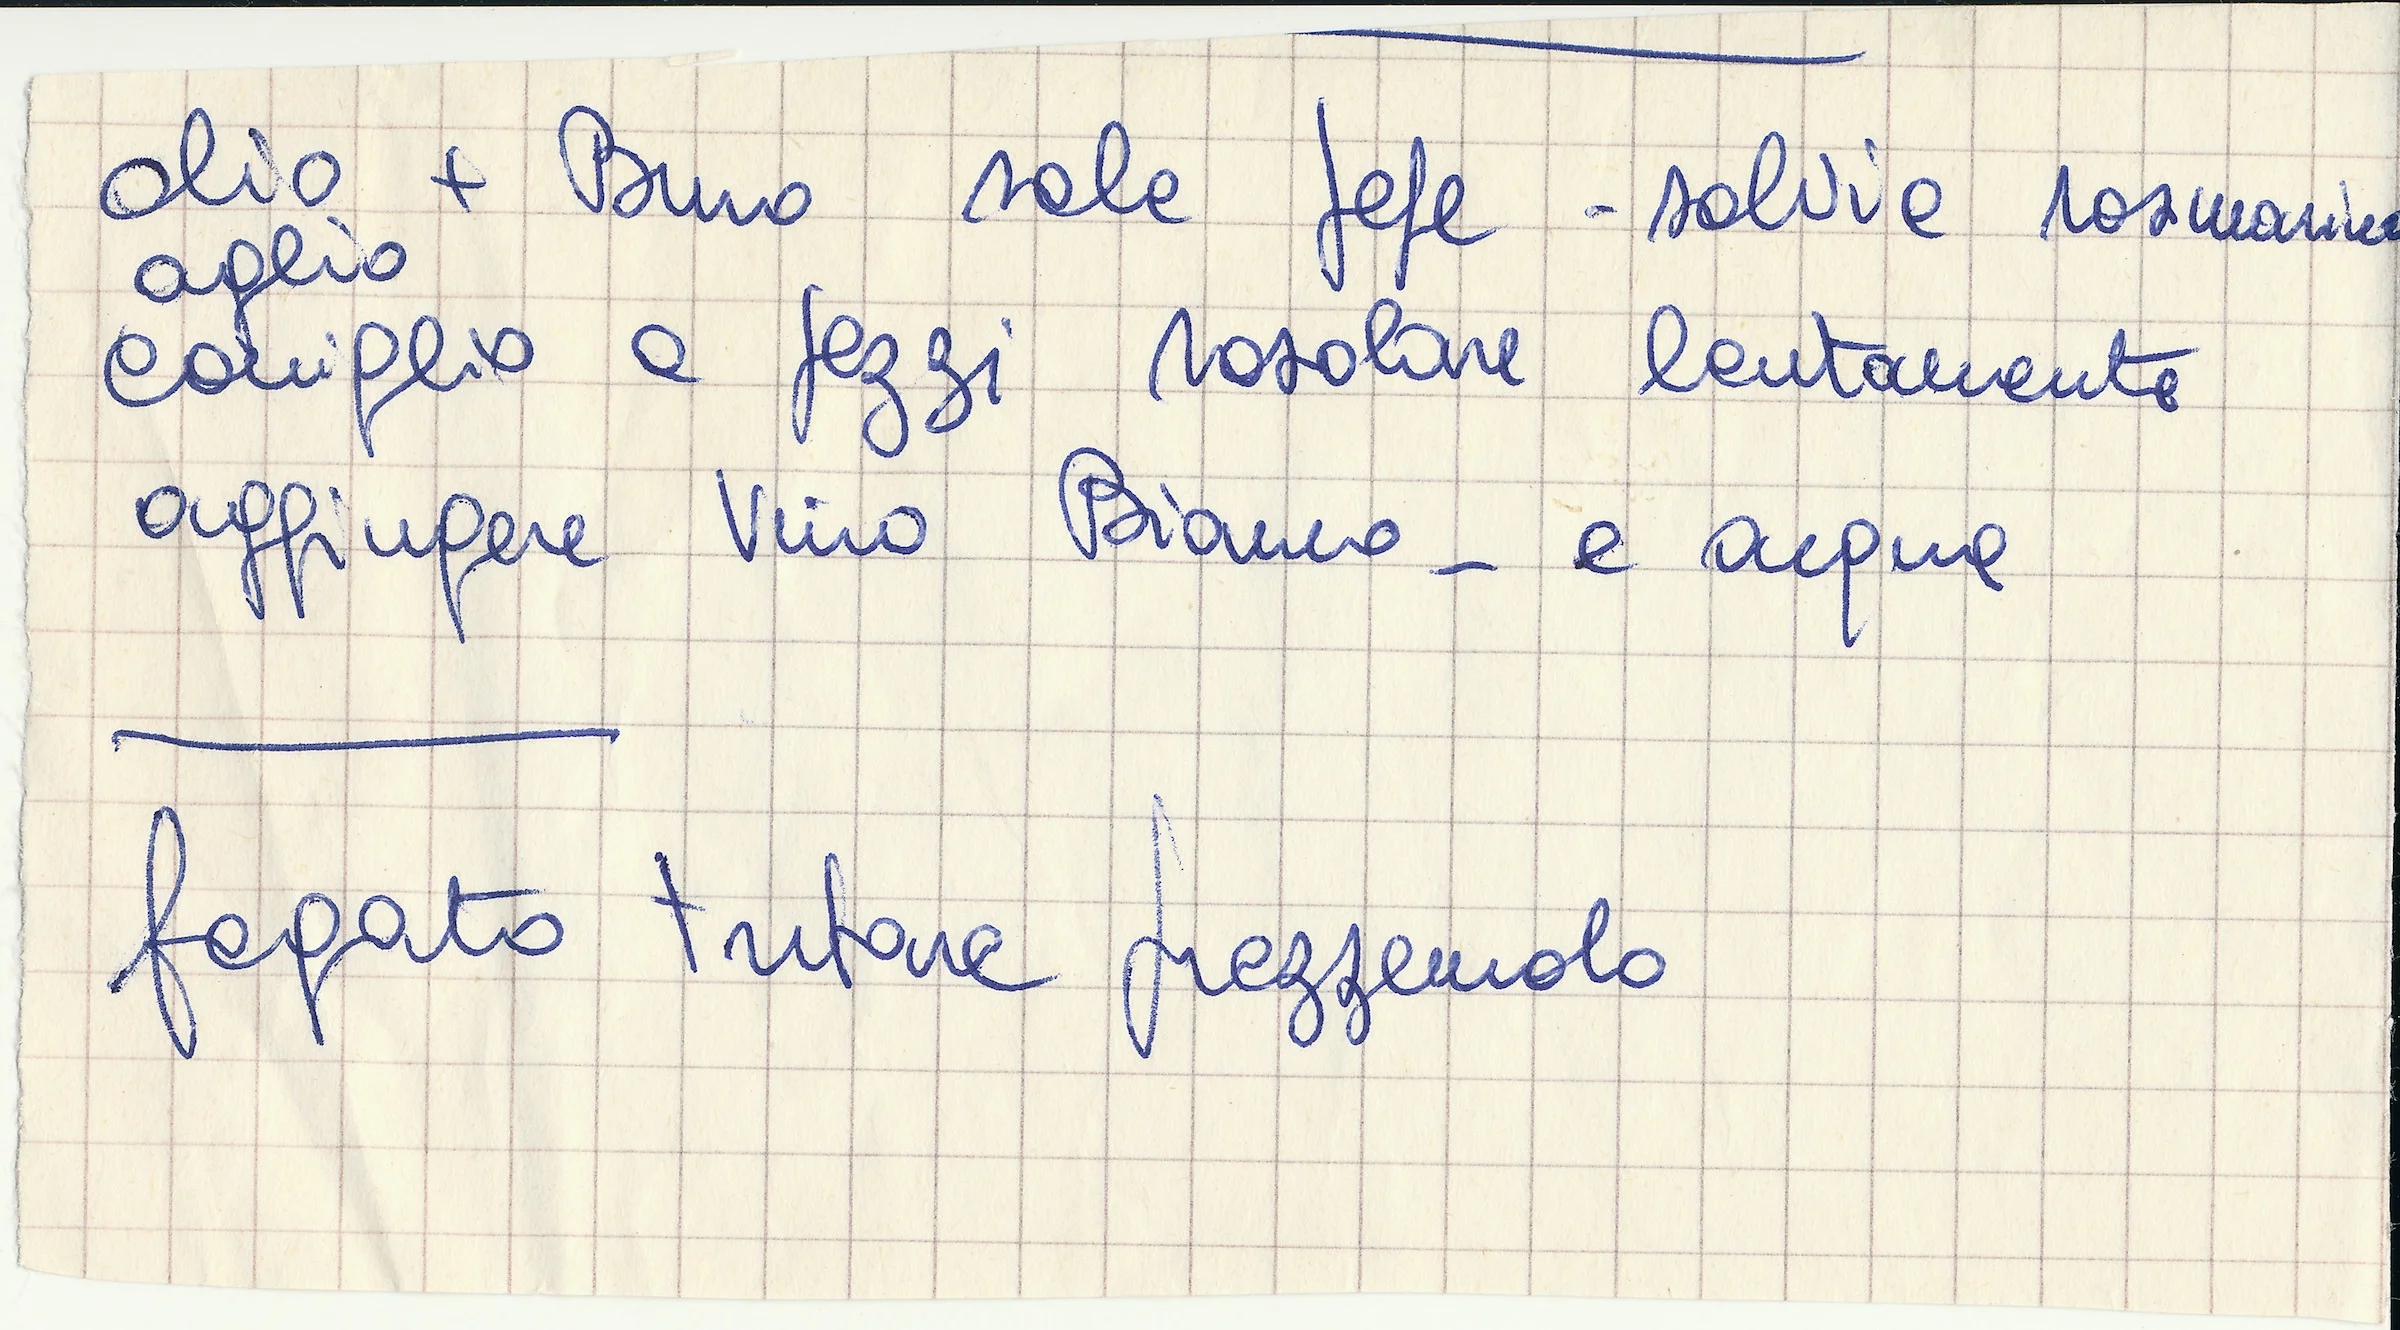 olio + Burro sale pepe - salvia rosmarino
aglio
coniglio a pezzi rosolare lentamente
aggiungere vino Bianco - e acqua
fegato tritare prezzemolo